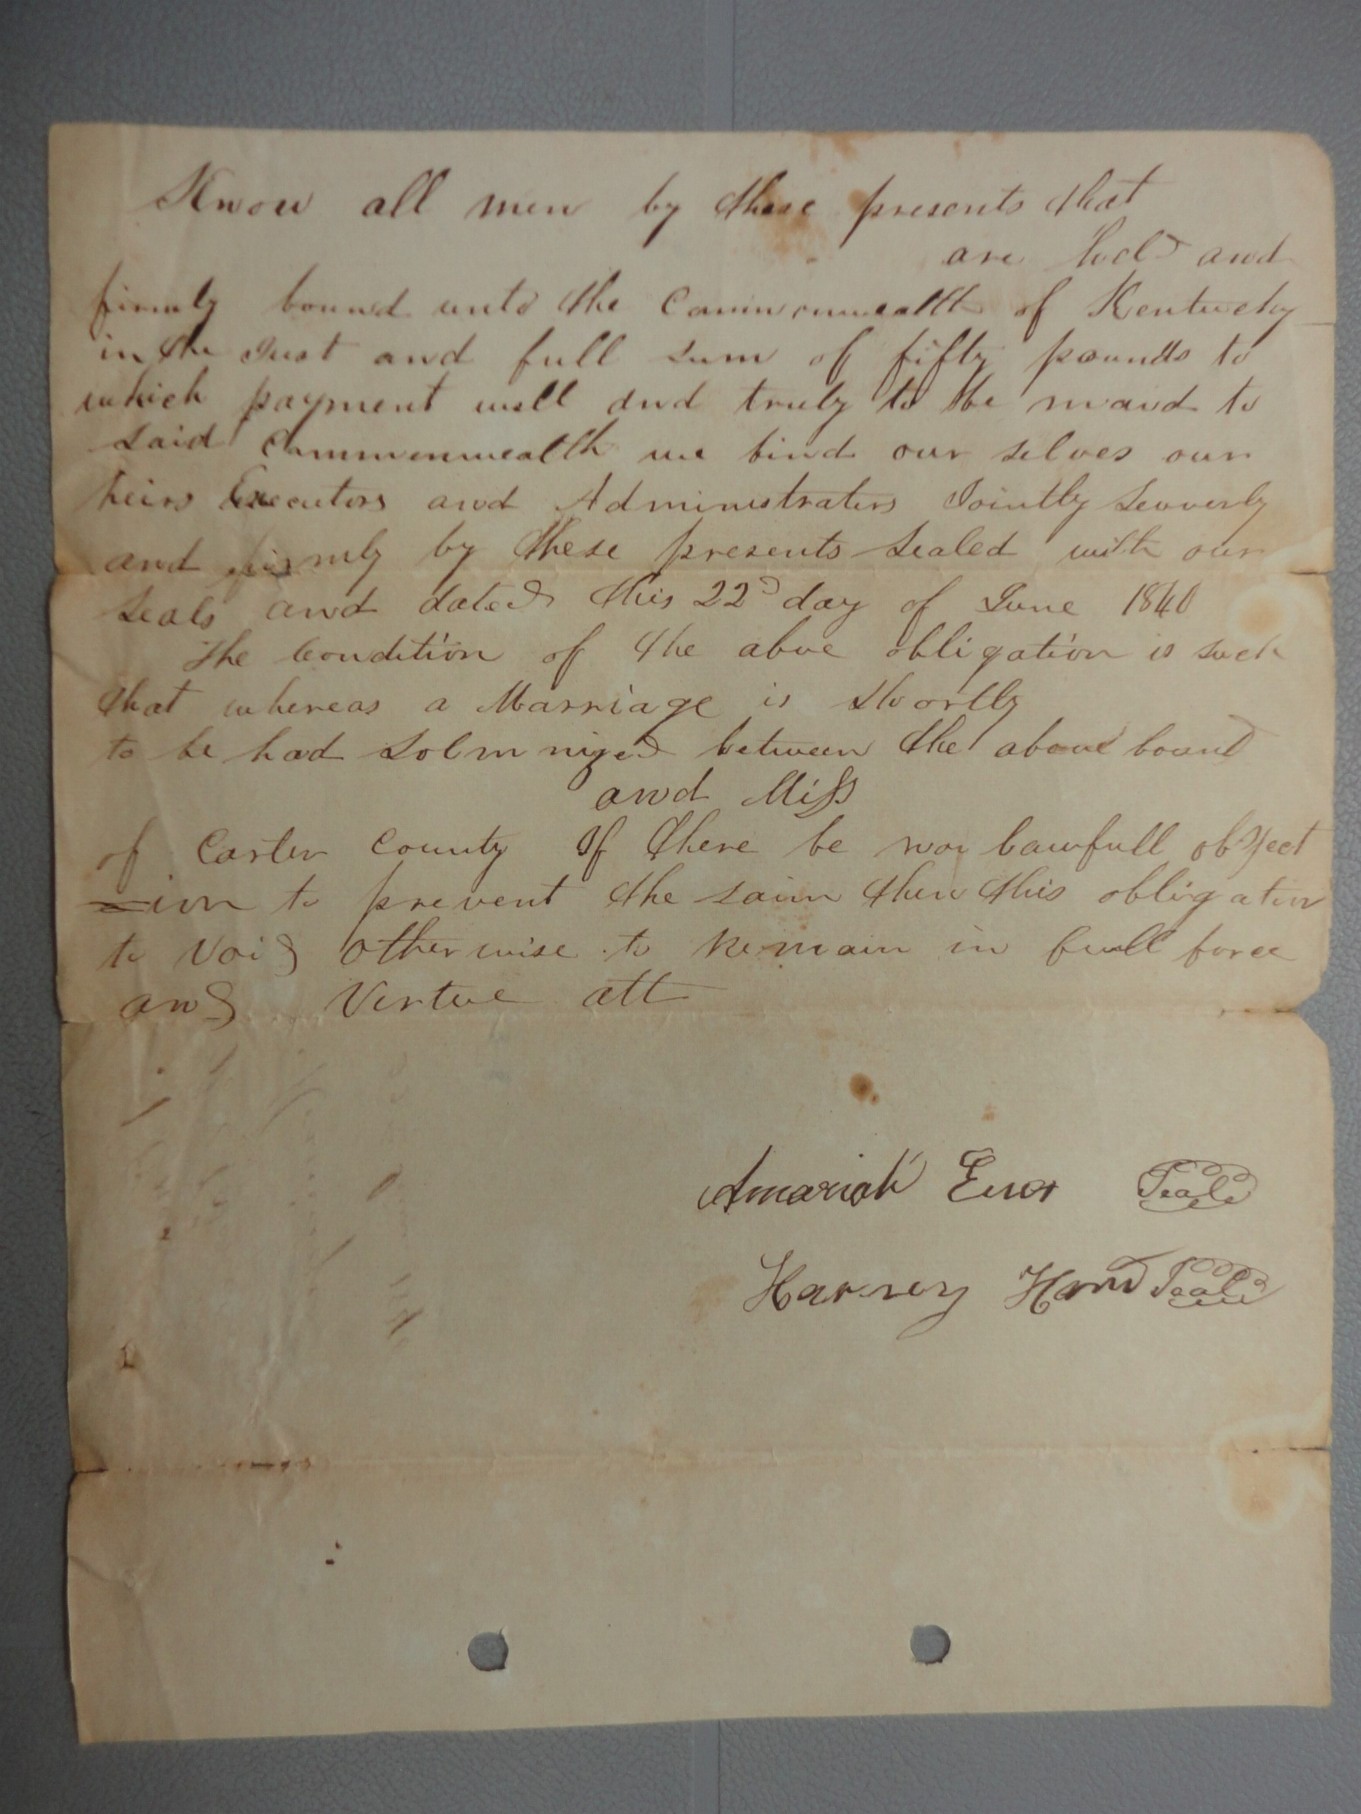 Know all men by these presents that
are held and
firmly bound unto the Commonwealth of Kentucky
in the Just and full sum of fifty pounds to
which payment well and truly to be maid to
said Commonwealth we bind our selves our
heirs Executors and Administraters Jointly severly
and firmly by these presents sealed with our
seals and dated this 22d day of June 1840
The Condition of the abve obligation is such
that whereas a Marriage is shortly
to be had solmnized between the above bound
and Miss
of Carter County If there be no lawfull object
=ion to prevent the saim then this obligation
to void otherwise to remain in full force
and Vertue att
Amariah Enox Seal
Harvey Ham Seal